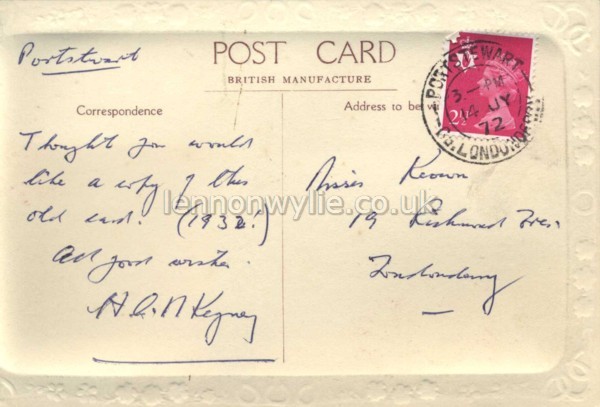 Portstewart
POST CARD
BRITISH MANUFACTURE
Correspondence
Address to be
Thought you would
like a copy of this
old card. (1932!)
All good wishes.
H. C. McKegney
Misses Keown
19 Richmond Cres.
Londonderry
PORTSTEWART
3 - PM
14 JY
72
LONDONDERRY
2½
lennonwylie.co.uk